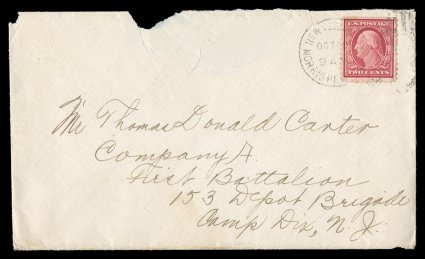 U.S. POSTAGE
TWO CENTS
NEW YORK
OCT
9 A
MORRIS HI
Mr Thomas Donald Carter
Company A.
First Battalion
153 Depot Brigade
Camp Dix, N. J.